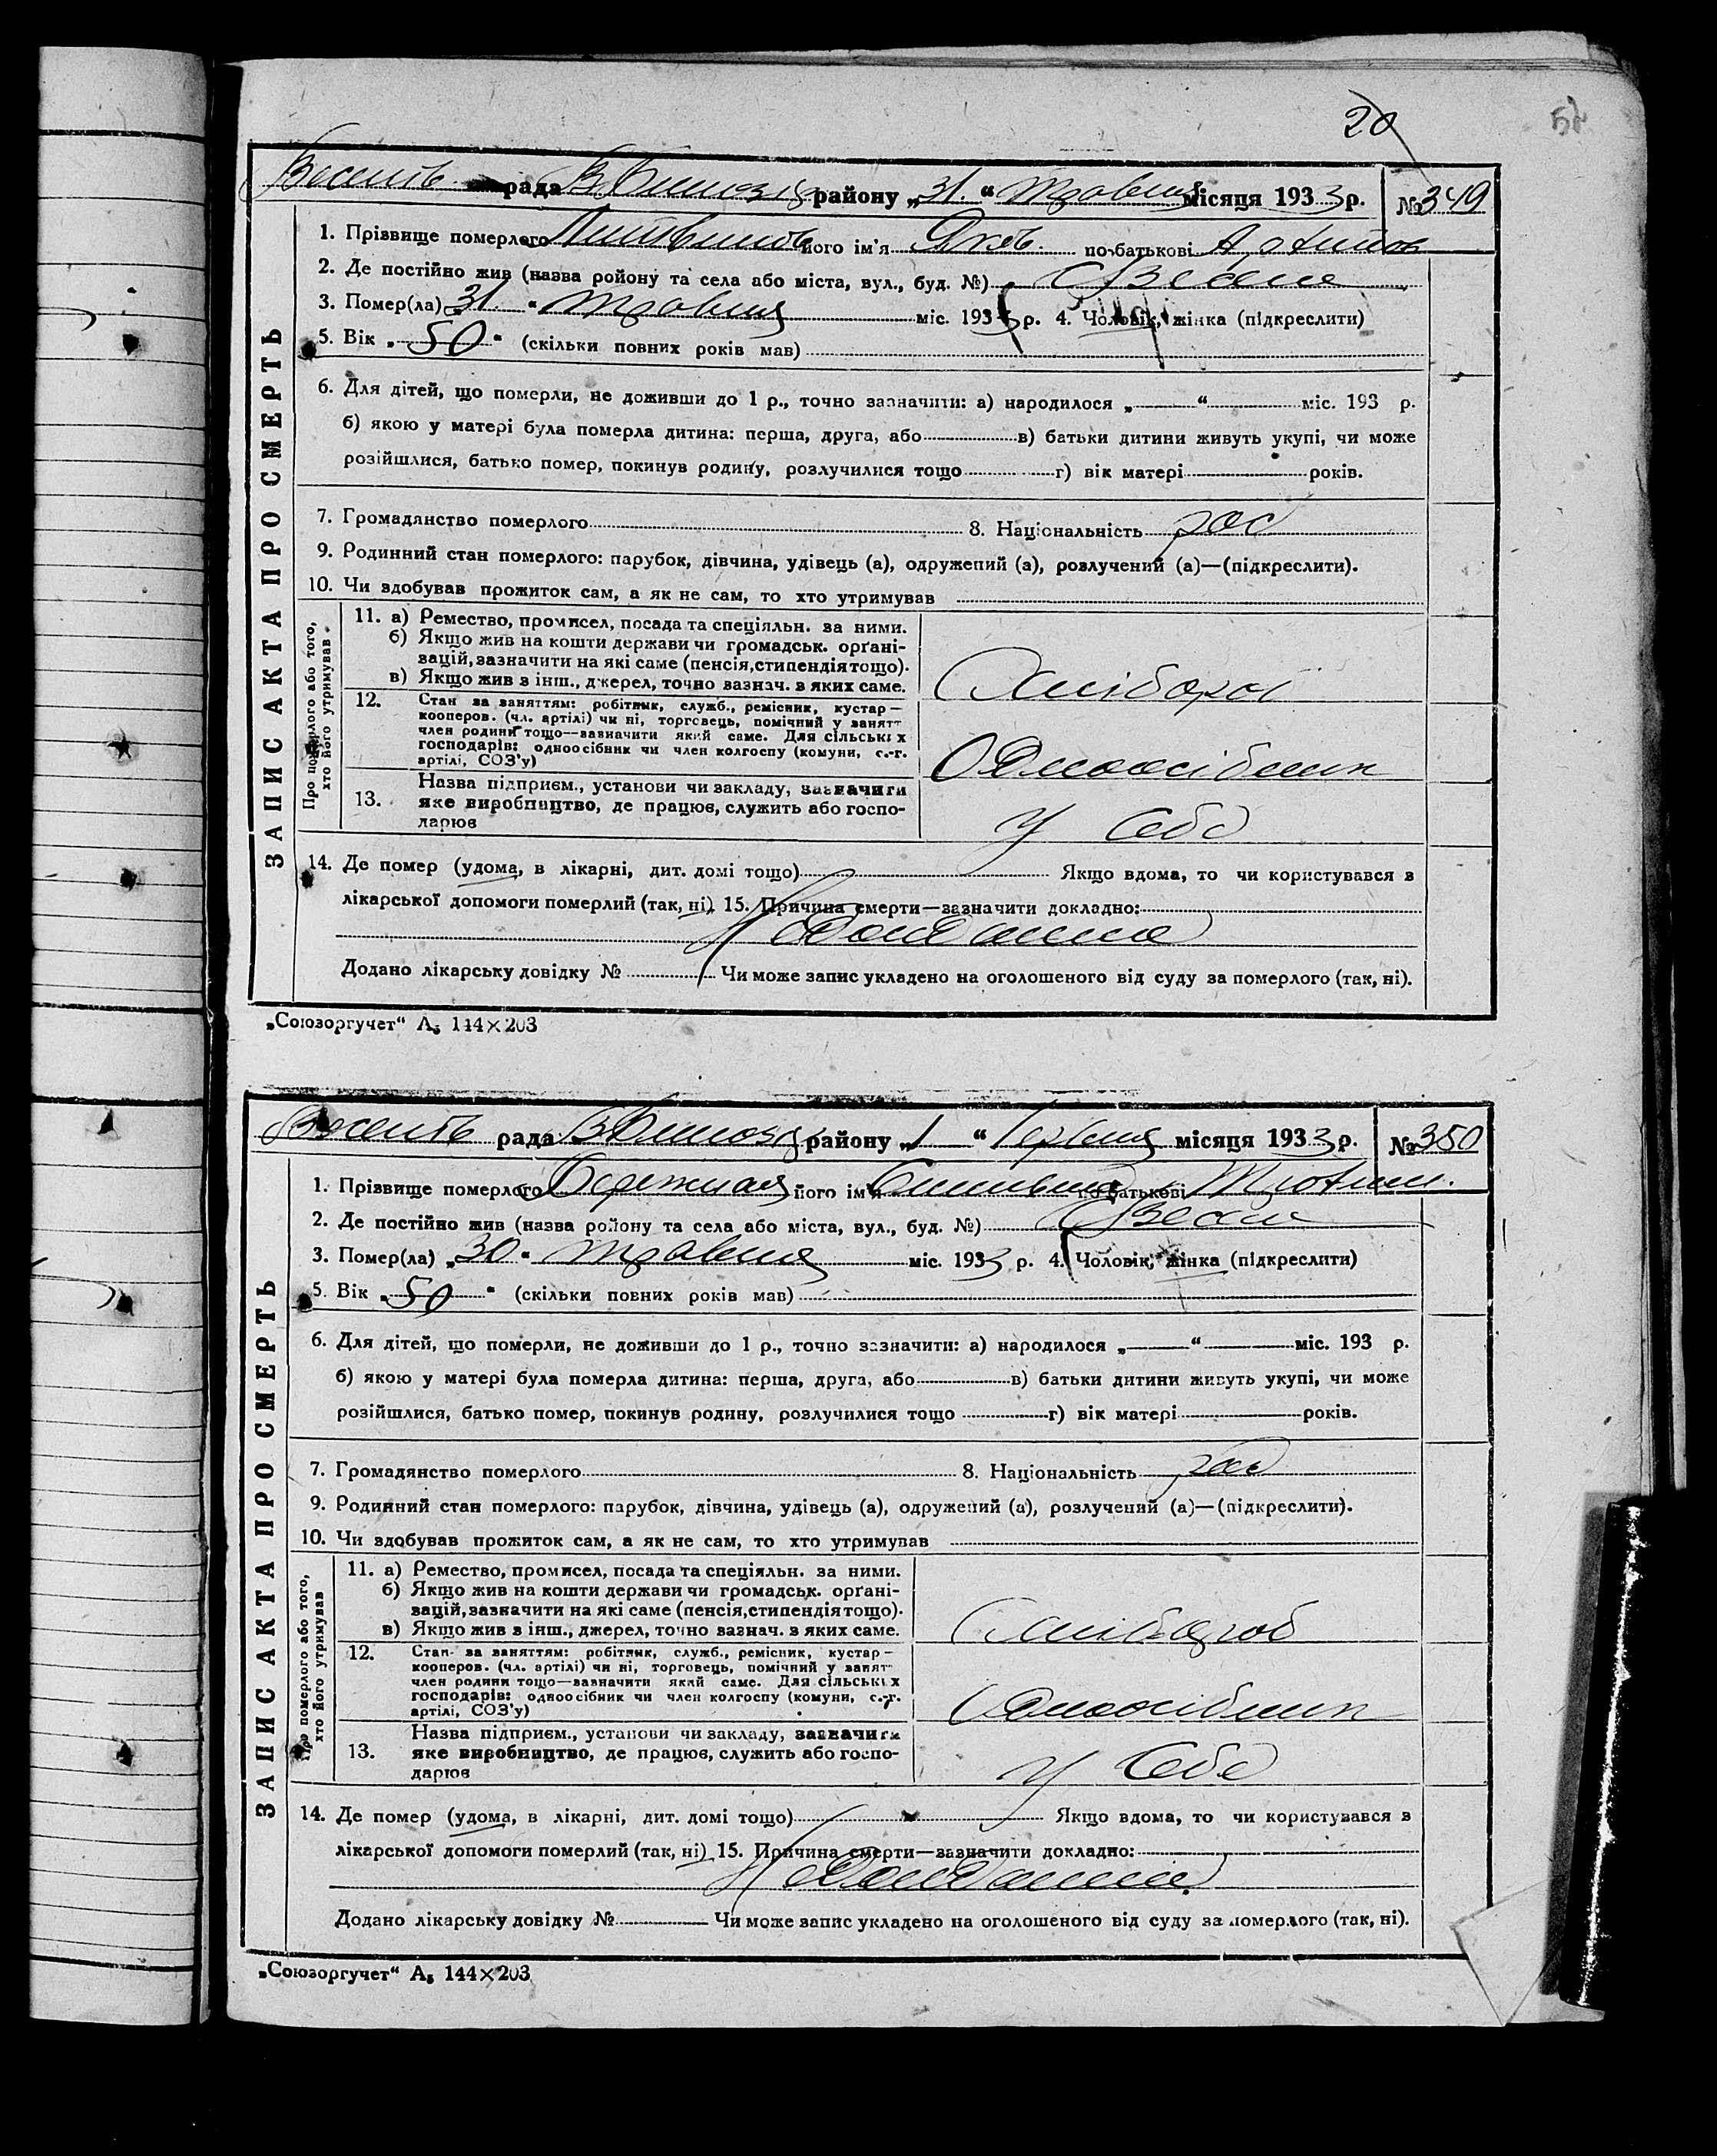 20
рада району „31.“ травня місяця 1933 р. № 349
1. Прізвище померлого його ім'я Яків по-батькові
2. Де постійно жив (назва ройону та села або міста, вул., буд. №)
3. Помер(ла) „31“ травня міс. 1933 р. 4. Чоловік, жінка (підкреслити)
5. Вік „50“ (скільки повних років мав)
6. Для дітей, що померли, не доживши до 1 р., точно зазначити: а) народилося „ “ міс. 193 р.
б) якою у матері була померла дитина: перша, друга, або в) батьки дитини живуть укупі, чи може
розійшлися, батько помер, покинув родину, розлучилися тощо г) вік матері років.
7. Громадянство померлого 8. Національність
9. Родинний стан померлого: парубок, дівчина, удівець (а), одружений (а), розлучений (а)—(підкреслити).
10. Чи здобував прожиток сам, а як не сам, то хто утримував
Про померлого або того, хто його утримував
11. а) Ремество, промисел, посада та спеціяльн. за ними.
б) Якщо жив на кошти держави чи громадськ. орґані-
зацій, зазначити на які саме (пенсія, стипендія тощо).
в) Якщо жив з інш., джерел, точно зазнач. з яких саме.
Хлібороб
12. Стан за заняттям: робітник, служб., ремісник, кустар—
кооперов. (чл. артілі) чи ні, торговець, помічний у занятт
член родини тощо—зазначити який саме. Для сільських
господарів: одноосібник чи член колгоспу (комуни, с.-г.
артілі, СОЗ'у)
Одноосібник
13. Назва підприєм., установи чи закладу, зазначити
яке виробництво, де працює, служить або госпо-
дарює
у себе
14. Де помер (удома, в лікарні, дит. домі тощо) Якщо вдома, то чи користувався з
лікарської допомоги померлий (так, ні). 15. Причина смерти—зазначити докладно:
Додано лікарську довідку № Чи може запис укладено на оголошеного від суду за померлого (так, ні).
ЗАПИС АКТА ПРО СМЕРТЬ
„Союзоргучет“ А5 144×203
рада району „1“ Червня місяця 1933 р. № 350
1. Прізвище померлого Бережная його ім'я по-батькові
2. Де постійно жив (назва ройону та села або міста, вул., буд. №)
3. Помер(ла) „30“ травня міс. 1933 р. 4. Чоловік, жінка (підкреслити)
5. Вік „50“ (скільки повних років мав)
6. Для дітей, що померли, не доживши до 1 р., точно зазначити: а) народилося „ “ міс. 193 р.
б) якою у матері була померла дитина: перша, друга, або в) батьки дитини живуть укупі, чи може
розійшлися, батько помер, покинув родину, розлучилися тощо г) вік матері років.
7. Громадянство померлого 8. Національність
9. Родинний стан померлого: парубок, дівчина, удівець (а), одружений (а), розлучений (а)—(підкреслити).
10. Чи здобував прожиток сам, а як не сам, то хто утримував
Про померлого або того, хто його утримував
11. а) Ремество, промисел, посада та спеціяльн. за ними.
б) Якщо жив на кошти держави чи громадськ. орґані-
зацій, зазначити на які саме (пенсія, стипендія тощо).
в) Якщо жив з інш., джерел, точно зазнач. з яких саме.
Хлібороб
12. Стан за заняттям: робітник, служб., ремісник, кустар—
кооперов. (чл. артілі) чи ні, торговець, помічний у занят
член родини тощо—зазначити який саме. Для сільських
господарів: одноосібник чи член колгоспу (комуни, с.-г.
артілі, СОЗ'у)
Одноосібник
13. Назва підприєм., установи чи закладу, зазначити
яке виробництво, де працює, служить або госпо-
дарює
у себе
14. Де помер (удома, в лікарні, дит. домі тощо) Якщо вдома, то чи користувався з
лікарської допомоги померлий (так, ні) 15. Причина смерти—зазначити докладно:
Додано лікарську довідку № Чи може запис укладено на оголошеного від суду за померлого (так, ні).
ЗАПИС АКТА ПРО СМЕРТЬ
„Союзоргучет“ А5 144×203